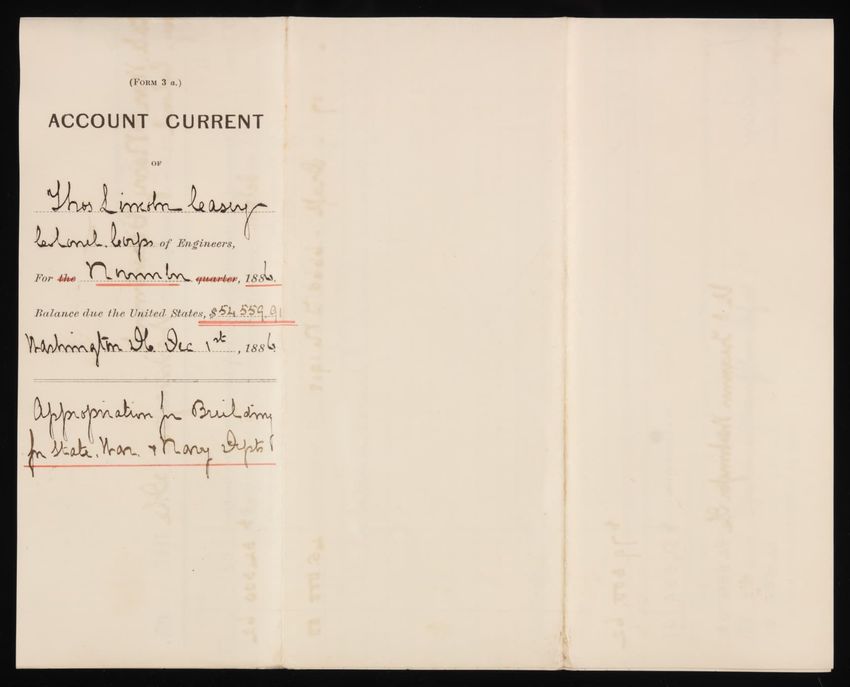 (FORM 3 a.)
ACCOUNT CURRENT
OF
Thos Lincoln Casey
Colonel. Corps of Engineers,
For the November quarter, 1886.
Balance due the United States, $54 559.91
Washington DC. Dec 1st, 1886
Appropriation for Building
for State, War. & Navy Depts